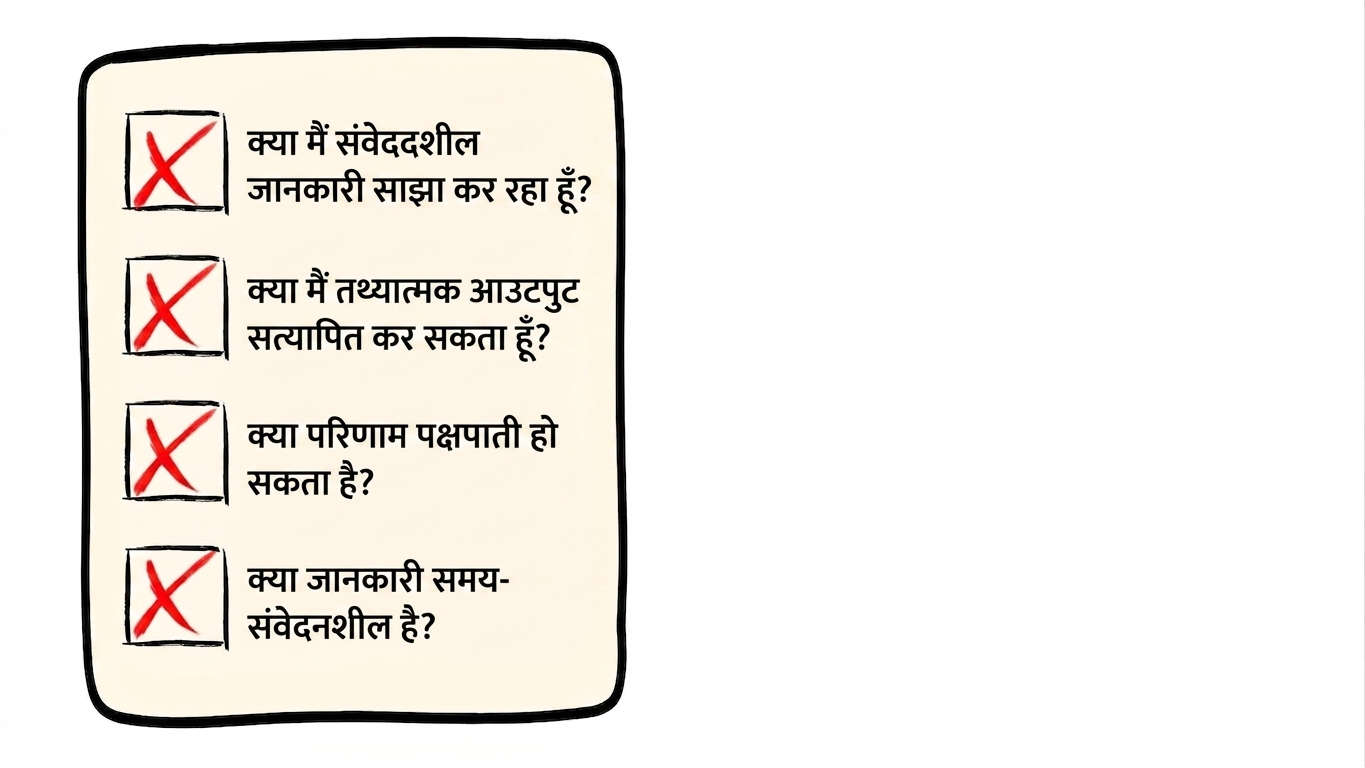 क्या मैं संवेददशील
जानकारी साझा कर रहा हूँ?
क्या मैं तथ्यात्मक आउटपुट
सत्यापित कर सकता हूँ?
क्या परिणाम पक्षपाती हो
सकता है?
क्या जानकारी समय-
संवेदनशील है?